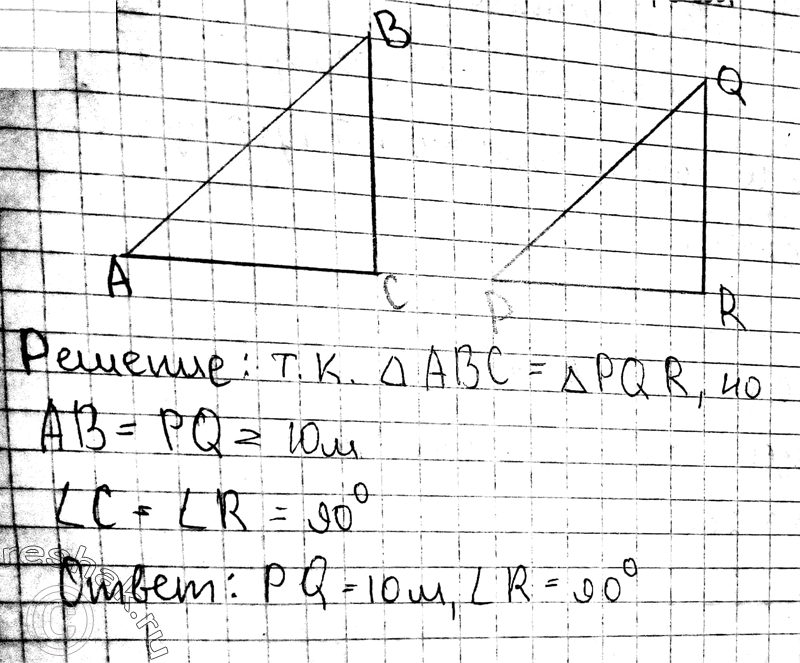 B
Q
A
C
P
R
Решение: т.к. △ABC = △PQR, то
AB = PQ = 10м
∠C = ∠R = 90⁰
Ответ: PQ = 10м, ∠R = 90⁰
reshak.ru
©